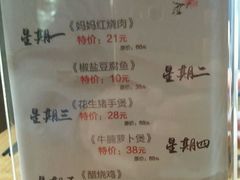 星期一 《妈妈红烧肉》
特价：21元
《椒盐豆腐鱼》
特价：10元 星期二
《花生猪手煲》
星期三 特价：28元
《牛腩萝卜煲》
特价：38元 星期四
《醋烧鸡》